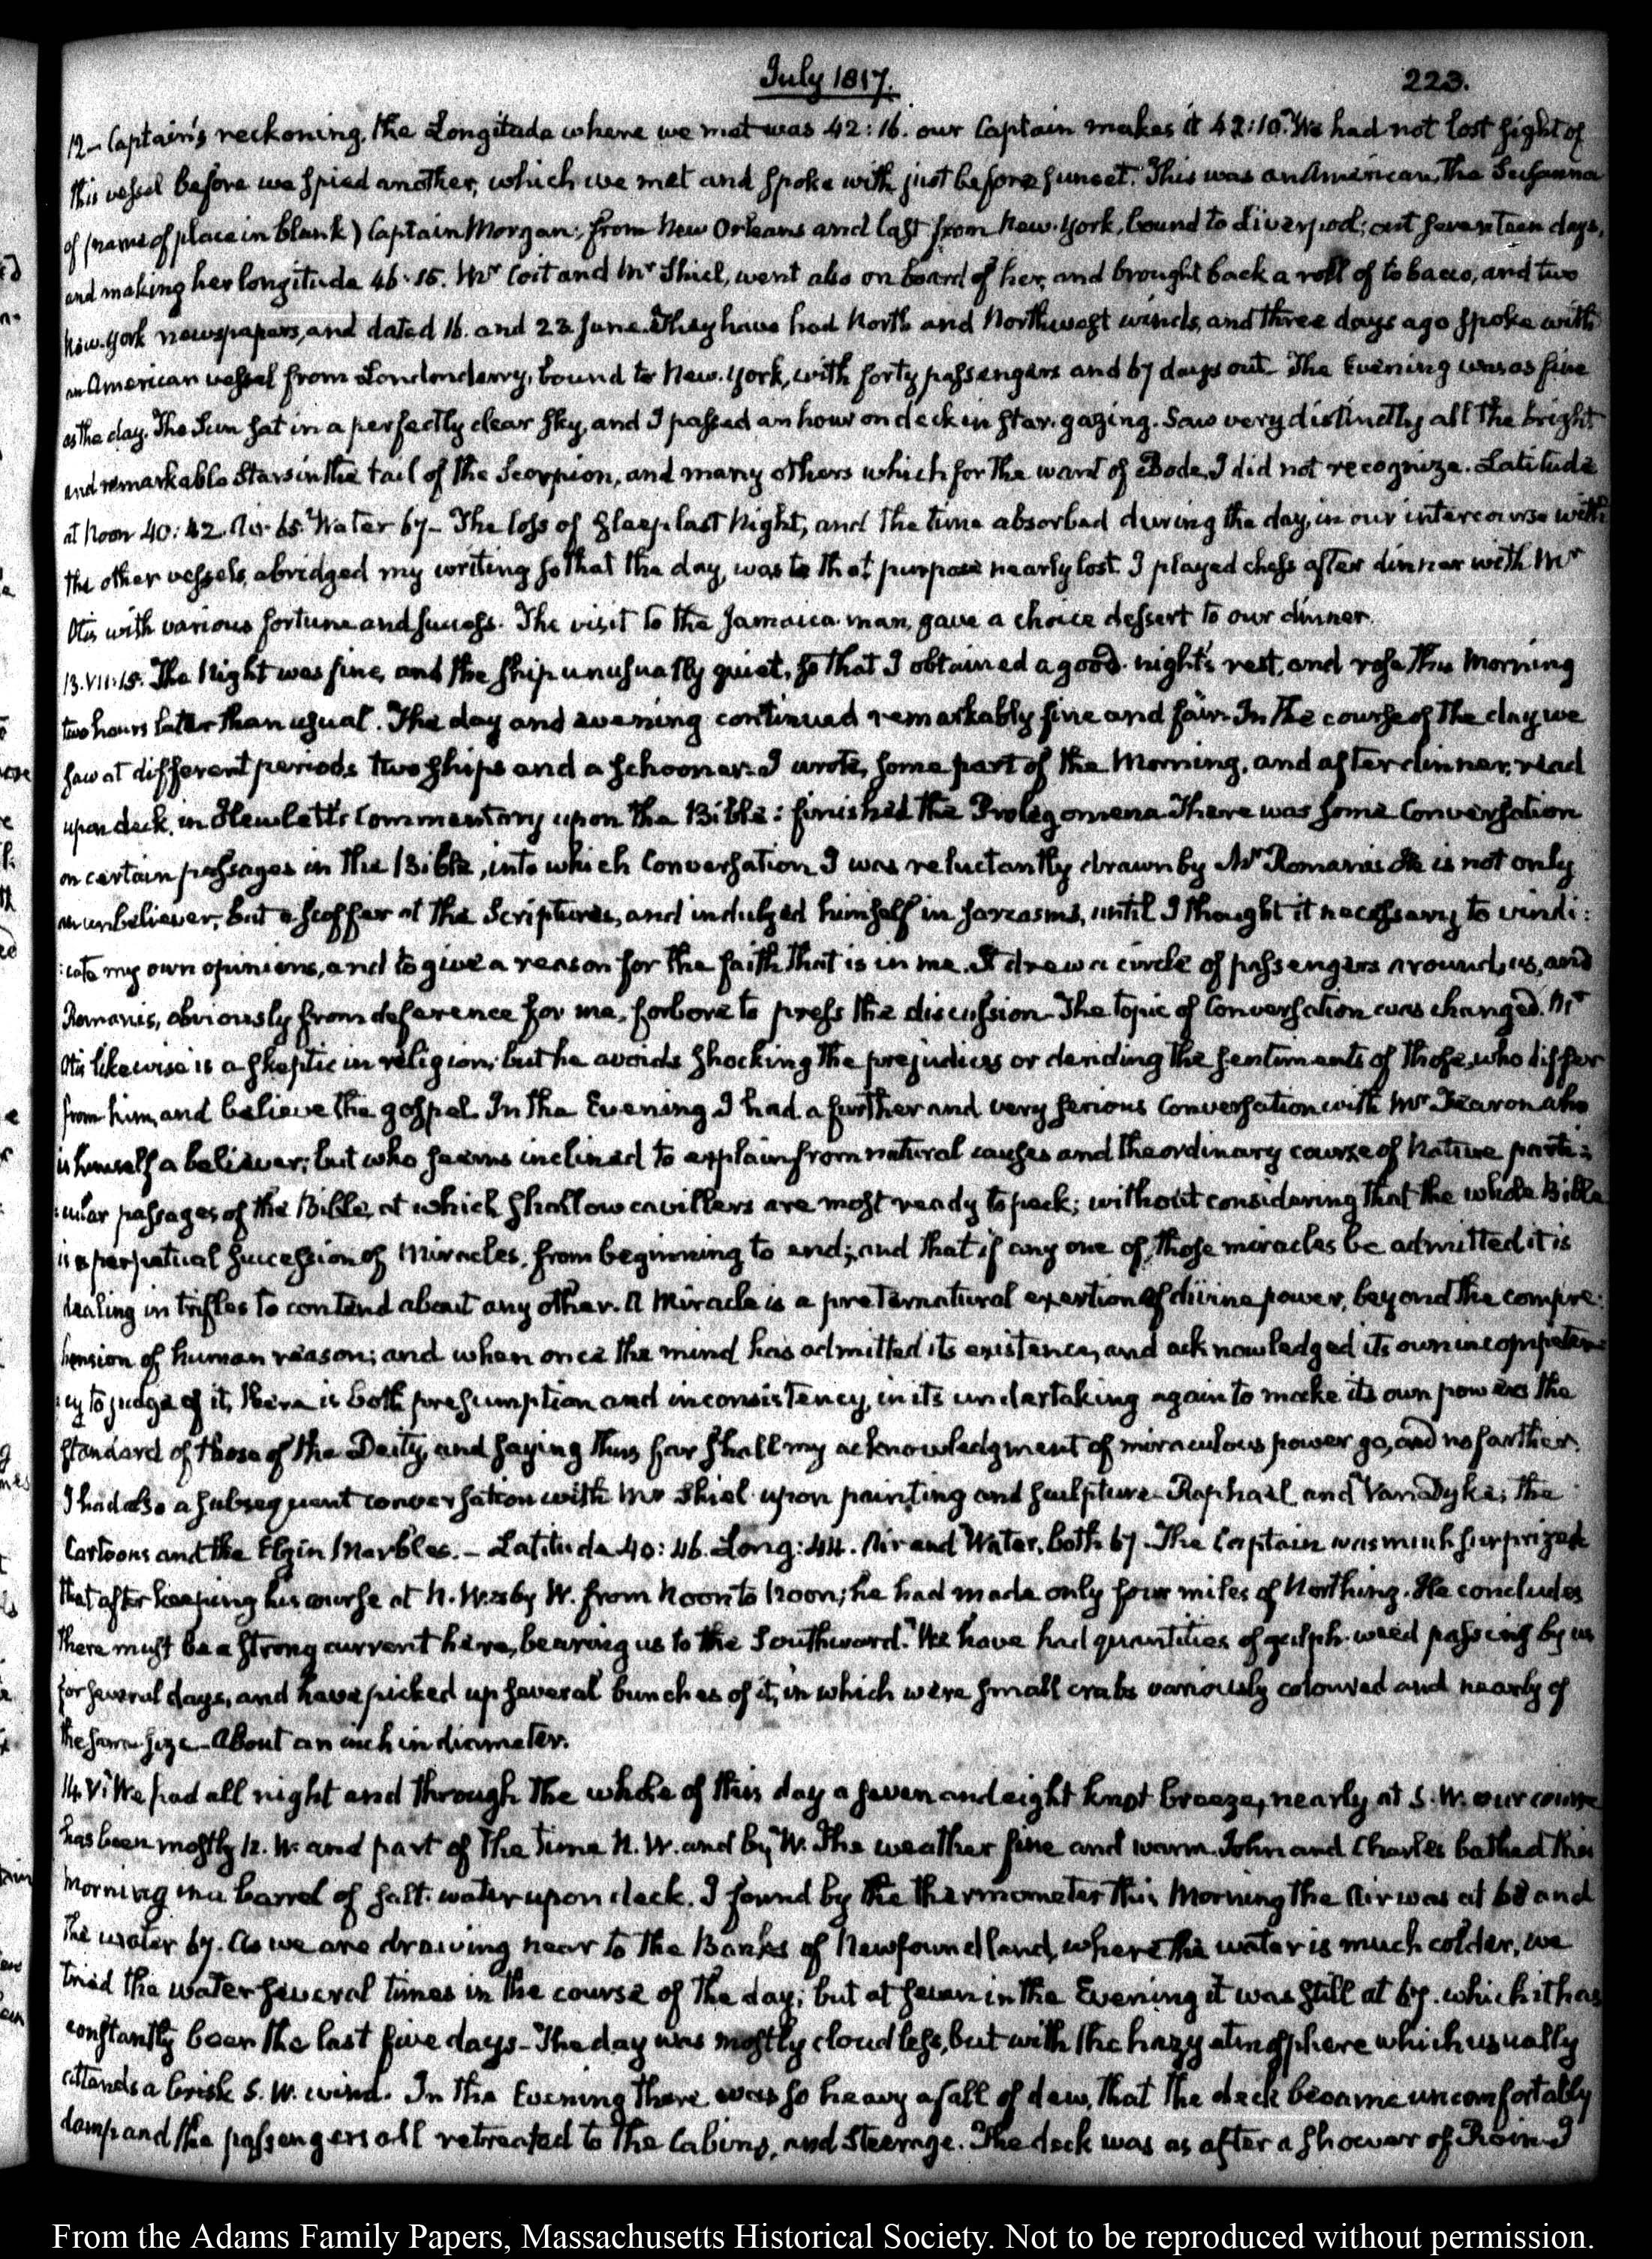 July 1817. 223.
12- Captain's reckoning. the Longitude where we met was 42:16. our Captain makes it 42:10. We had not lost sight of
this vessel before we spied another, which we met and spoke with just before sunset. This was an American, the Susanna
of (name of place in blank) Captain Morgan, from New Orleans and last from New-York, bound to Liverpool; out seventeen days,
and making her longitude 46:15. Mr Coit and Mr Shiel, went also on board of her, and brought back a roll of tobacco, and two
New-York newspapers, and dated 16. and 23 June. They have had North and Northwest winds, and three days ago spoke with
an American vessel from Londonderry, bound to New-York, with forty passengers and 67 days out- The Evening was as fine
as the day. The Sun sat in a perfectly clear sky, and I passed an hour on deck in star-gazing. Saw very distinctly all the bright
and remarkable Stars in the tail of the Scorpion, and many others which for the want of Bode, I did not recognize. Latitude
at Noon 40:42. Air 65. Water 67- The loss of sleep last Night, and the time absorbed during the day, in our intercourse with
the other vessels, abridged my writing so that the day, was to that purpose nearly lost. I played chess after dinner with Mr
Otis with various fortune and success. The visit to the Jamaica-man, gave a choice dessert to our dinner.
13. VII:15. The Night was fine, and the ship unusually quiet, so that I obtained a good night's rest, and rose this Morning
two hours later than usual. The day and evening continued remarkably fine and fair. In the course of the day we
saw at different periods two ships and a schooner. I wrote, some part of the Morning, and after dinner, read
upon deck, in Hewlett's Commentary upon the Bible: finished the Prolegomena. There was some Conversation
on certain passages in the Bible, into which Conversation I was reluctantly drawn by Mr Romanis. He is not only
an unbeliever, but a scoffer at the Scriptures, and indulged himself in sarcasms, until I thought it necessary to vindi:
:cate my own opinions, and to give a reason for the faith that is in me. It drew a circle of passengers around us, and
Romanis, obviously from deference for me, forbore to press the discussion- The topic of Conversation was changed. Mr
Otis likewise is a skeptic in religion; but he avoids shocking the prejudices or deriding the sentiments of those, who differ
from him, and believe the gospel. In the Evening I had a further and very serious Conversation with Mr Fearon who
is himself a believer; but who seems inclined to explain from natural causes and the ordinary course of Nature parti:
:cular passages of the Bible, at which shallow cavillers are most ready to peck; without considering that the whole Bible
is a perpetual succession of Miracles, from beginning to end; and that if any one of those miracles be admitted it is
dealing in trifles to contend about any other. A Miracle is a preternatural exertion of divine power, beyond the compre:
hension of human reason; and when once the mind has admitted its existence, and acknowledged its own incompeten:
:cy to judge of it, there is both presumption and inconsistency, in its undertaking again to make its own powers the
standard of those of the Deity, and saying thus far shall my acknowledgment of miraculous power go, and no farther.
I had also a subsequent conversation with Mr Shiel upon painting and sculpture- Raphael and Van Dyke; the
Cartoons and the Elgin Marbles.- Latitude 40:46. Long: 44. Air and Water, both 67. The Captain was much surprized
that after keeping his course at N. W. by W. from Noon to Noon, he had made only four miles of Northing. He concludes
there must be a strong current here, bearing us to the Southward. We have had quantities of gulph-weed passing by us
for several days, and have picked up several bunches of it, in which were small crabs variously coloured and nearly of
the same size- About an inch in diameter.
14. VI. We had all night and through the whole of this day a seven and eight knot breeze, nearly at S. W. our course
has been mostly N. W. and part of the time N. W. and by W. The weather fine and warm. John and Charles bathed this
Morning in a barrel of salt-water upon deck. I found by the thermometer this Morning the Air was at 68 and
the water 67. As we are drawing near to the Banks of Newfoundland, where the water is much colder, we
tried the water several times in the course of the day; but at seven in the Evening it was still at 67. which it has
constantly been the last five days- The day was mostly cloudless, but with the hazy atmosphere which usually
attends a brisk S. W. wind. In the Evening there was so heavy a fall of dew, that the deck became uncomfortably
damp and the passengers all retreated to the Cabins, and Steerage. The deck was as after a shower of Rain. I
From the Adams Family Papers, Massachusetts Historical Society. Not to be reproduced without permission.